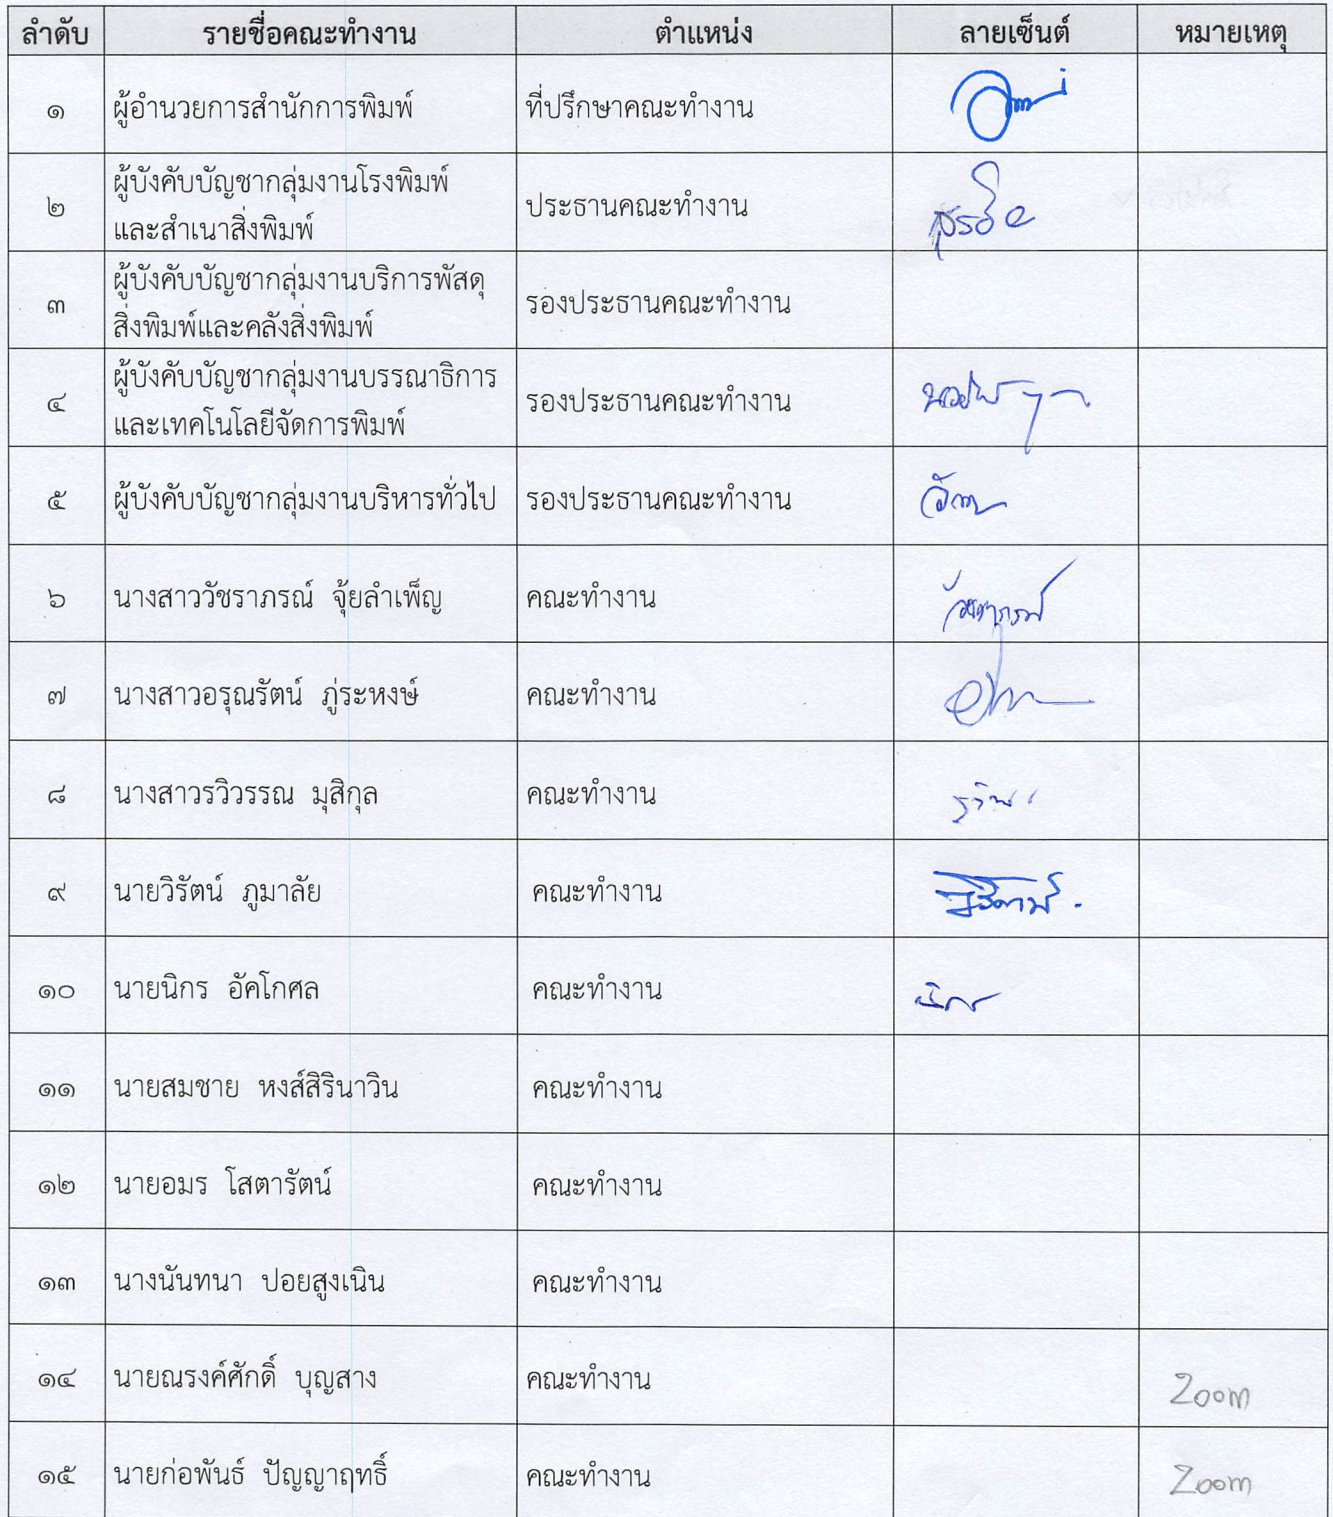 ลำดับ รายชื่อคณะทำงาน ตำแหน่ง ลายเซ็นต์ หมายเหตุ
๑ ผู้อำนวยการสำนักการพิมพ์ ที่ปรึกษาคณะทำงาน
ผู้บังคับบัญชากลุ่มงานโรงพิมพ์
๒ ประธานคณะทำงาน
และสำเนาสิ่งพิมพ์
ผู้บังคับบัญชากลุ่มงานบริการพัสดุ
๓ รองประธานคณะทำงาน
สิ่งพิมพ์และคลังสิ่งพิมพ์
ผู้บังคับบัญชากลุ่มงานบรรณาธิการ
๔ รองประธานคณะทำงาน
และเทคโนโลยีจัดการพิมพ์
๕ ผู้บังคับบัญชากลุ่มงานบริหารทั่วไป รองประธานคณะทำงาน
๖ นางสาววัชราภรณ์ จุ้ยลำเพ็ญ คณะทำงาน
๗ นางสาวอรุณรัตน์ ภู่ระหงษ์ คณะทำงาน
๘ นางสาวรวิวรรณ มุสิกุล คณะทำงาน
๙ นายวิรัตน์ ภูมาลัย คณะทำงาน
๑๐ นายนิกร อัคโกศล คณะทำงาน นิกร
๑๑ นายสมชาย หงส์สิรินาวิน คณะทำงาน
๑๒ นายอมร โสตารัตน์ คณะทำงาน
๑๓ นางนันทนา ปอยสูงเนิน คณะทำงาน
๑๔ นายณรงค์ศักดิ์ บุญสาง คณะทำงาน Zoom
๑๕ นายก่อพันธ์ ปัญญาฤทธิ์ คณะทำงาน Zoom